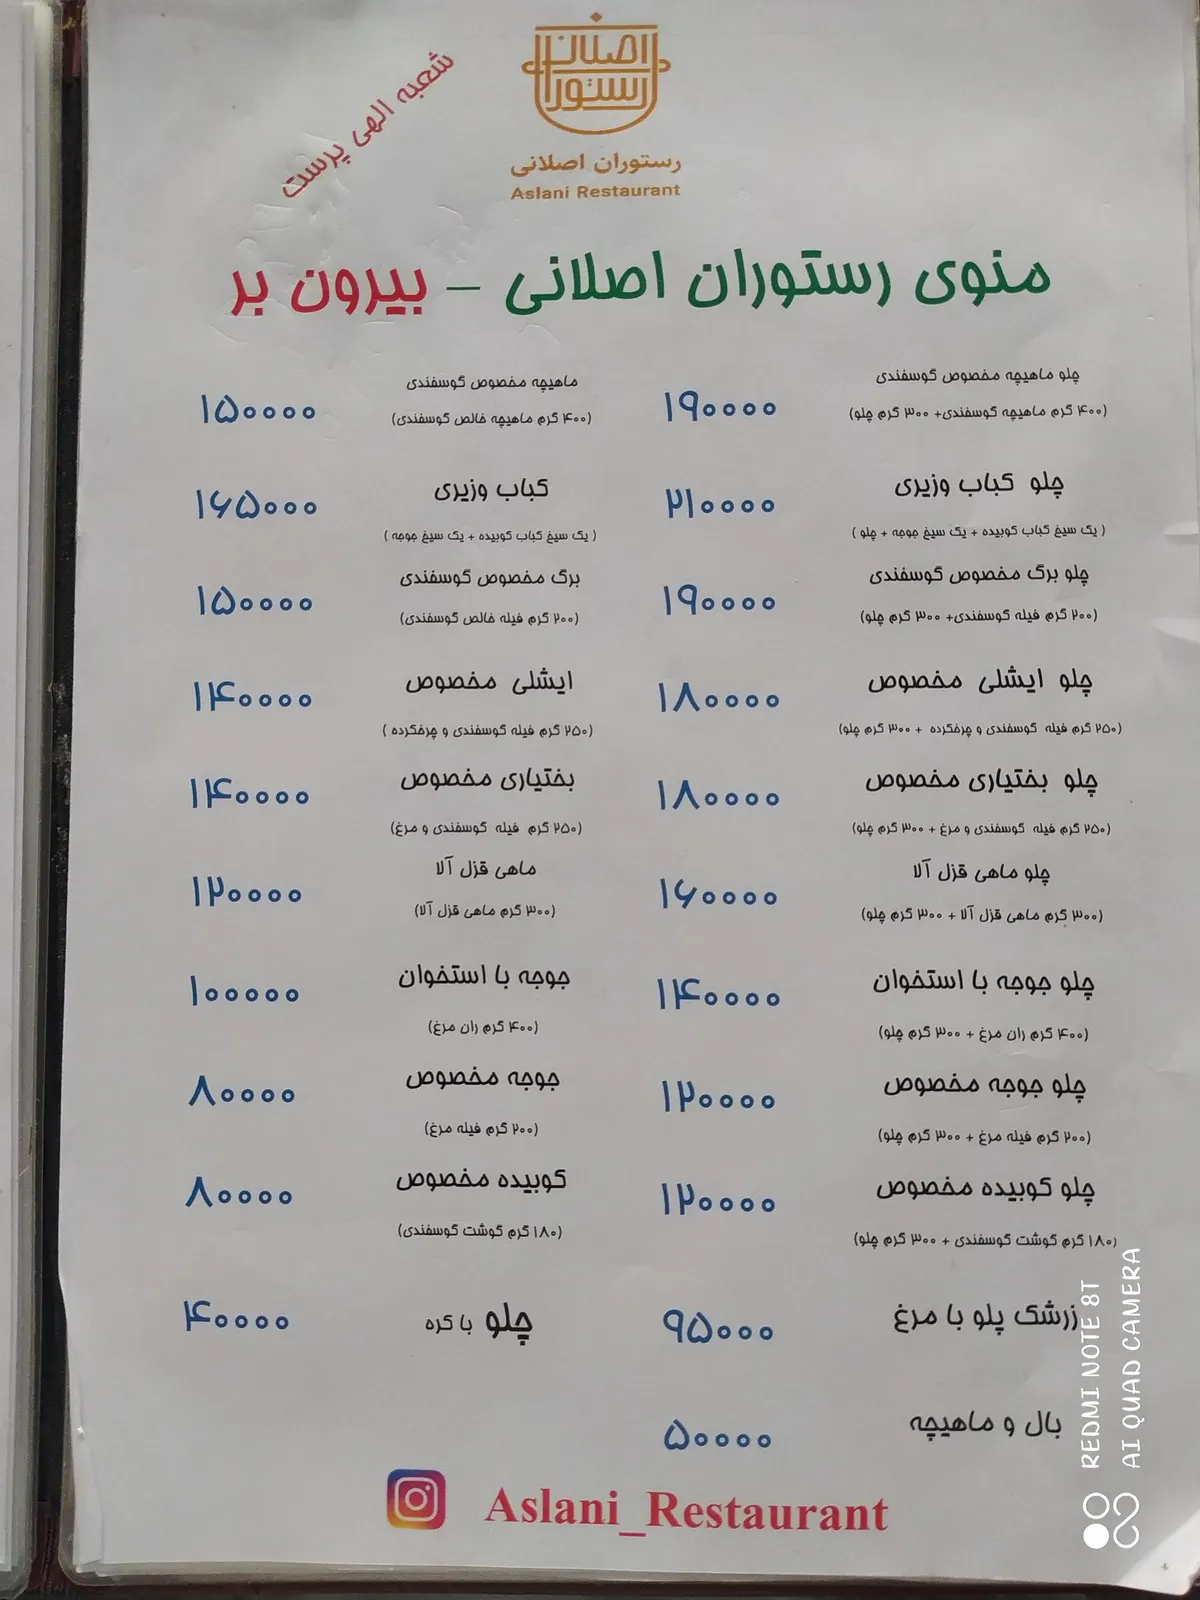 شعبه الهی پرست
اصلانی
رستوران
رستوران اصلانی
Aslani Restaurant
منوی رستوران اصلانی - بیرون بر
چلو ماهیچه مخصوص گوسفندی
(۴۰۰ گرم ماهیچه گوسفندی+ ۳۰۰ گرم چلو)
۱۹۰۰۰۰
ماهیچه مخصوص گوسفندی
(۴۰۰ گرم ماهیچه خالص گوسفندی)
۱۵۰۰۰۰
چلو کباب وزیری
( یک سیخ کباب کوبیده + یک سیخ جوجه + چلو )
۲۱۰۰۰۰
کباب وزیری
( یک سیخ کباب کوبیده + یک سیخ جوجه )
۱۶۵۰۰۰
چلو برگ مخصوص گوسفندی
(۲۰۰ گرم فیله گوسفندی+ ۳۰۰ گرم چلو)
۱۹۰۰۰۰
برگ مخصوص گوسفندی
(۲۰۰ گرم فیله خالص گوسفندی)
۱۵۰۰۰۰
چلو ایشلی مخصوص
(۲۵۰ گرم فیله گوسفندی و چرخکرده + ۳۰۰ گرم چلو)
۱۸۰۰۰۰
ایشلی مخصوص
(۲۵۰ گرم فیله گوسفندی و چرخکرده )
۱۴۰۰۰۰
چلو بختیاری مخصوص
(۲۵۰ گرم فیله گوسفندی و مرغ + ۳۰۰ گرم چلو)
۱۸۰۰۰۰
بختیاری مخصوص
(۲۵۰ گرم فیله گوسفندی و مرغ)
۱۴۰۰۰۰
چلو ماهی قزل آلا
(۳۰۰ گرم ماهی قزل آلا + ۳۰۰ گرم چلو)
۱۶۰۰۰۰
ماهی قزل آلا
(۳۰۰ گرم ماهی قزل آلا)
۱۲۰۰۰۰
چلو جوجه با استخوان
(۴۰۰ گرم ران مرغ + ۳۰۰ گرم چلو)
۱۴۰۰۰۰
جوجه با استخوان
(۴۰۰ گرم ران مرغ)
۱۰۰۰۰۰
چلو جوجه مخصوص
(۲۰۰ گرم فیله مرغ + ۳۰۰ گرم چلو)
۱۲۰۰۰۰
جوجه مخصوص
(۲۰۰ گرم فیله مرغ)
۸۰۰۰۰
چلو کوبیده مخصوص
(۱۸۰ گرم گوشت گوسفندی + ۳۰۰ گرم چلو)
۱۲۰۰۰۰
کوبیده مخصوص
(۱۸۰ گرم گوشت گوسفندی)
۸۰۰۰۰
زرشک پلو با مرغ
۹۵۰۰۰
چلو با کره
۴۰۰۰۰
بال و ماهیچه
۵۰۰۰۰
Aslani_Restaurant
REDMI NOTE 8T
AI QUAD CAMERA